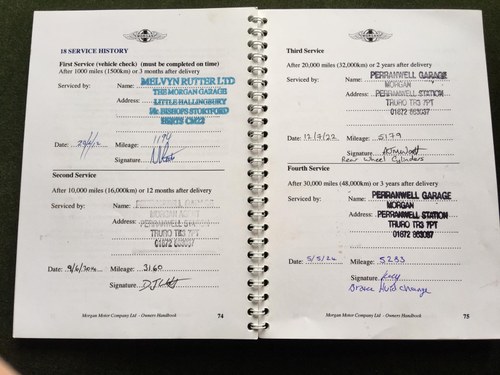 18 SERVICE HISTORY
First Service (vehicle check) (must be completed on time)
After 1000 miles (1500km) or 3 months after delivery
Serviced by: Name: MELVYN RUTTER LTD
THE MORGAN GARAGE
Address: LITTLE HALLINGBURY
Nr. BISHOPS STORTFORD
HERTS CM22
Date: Mileage: 1174
Signature:
Second Service
After 10,000 miles (16,000km) or 12 months after delivery
Serviced by: Name: PERRANWELL GARAGE
MORGAN
Address: PERRANWELL STATION
TRURO TR3 7PT
01872 863037
Date: Mileage: 3160
Signature:
Morgan Motor Company Ltd - Owners Handbook 74
Third Service
After 20,000 miles (32,000km) or 2 years after delivery
Serviced by: Name: PERRANWELL GARAGE
MORGAN
Address: PERRANWELL STATION
TRURO TR3 7PT
01872 863037
Date: 12/7/22 Mileage: 5179
Signature:
Rear Wheel Cylinders
Fourth Service
After 30,000 miles (48,000km) or 3 years after delivery
Serviced by: Name: PERRANWELL GARAGE
MORGAN
Address: PERRANWELL STATION
TRURO TR3 7PT
01872 863037
Date: 5/5/24 Mileage: 5233
Signature:
Brake fluid change
Morgan Motor Company Ltd - Owners Handbook 75